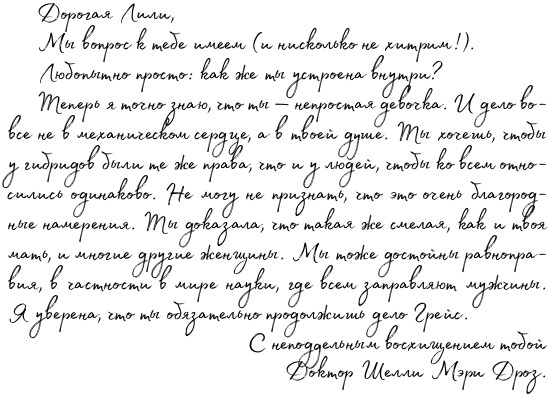 Дорогая Лили,
Мы вопрос к тебе имеем (и нисколько не хитрим!).
Любопытно просто: как же ты устроена внутри?
Теперь я точно знаю, что ты — непростая девочка. И дело во-
все не в механическом сердце, а в твоей душе. Ты хочешь, чтобы
у гибридов были те же права, что и у людей, чтобы ко всем отно-
сились одинаково. Не могу не признать, что это очень благород-
ные намерения. Ты доказала, что такая же смелая, как и твоя
мать, и многие другие женщины. Мы тоже достойны равнопра-
вия, в частности в мире науки, где всем заправляют мужчины.
Я уверена, что ты обязательно продолжишь дело Грейс.
С неподдельным восхищением тобой
Доктор Шелли Мэри Дроз.